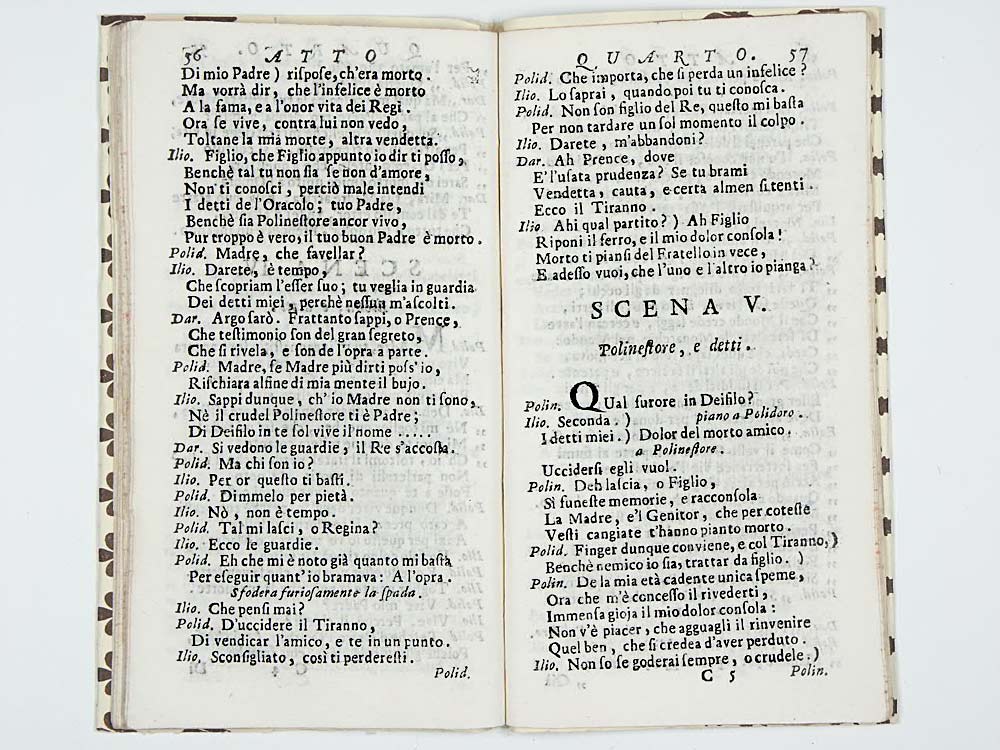 56 ATTO
Di mio Padre ) rispose, ch'era morto.
Ma vorrà dir, che l'infelice è morto
A la fama, e a l'onor vita dei Regi.
Ora se vive, contra lui non vedo,
Toltane la mia morte, altra vendetta.
Ilio. Figlio, che Figlio appunto io dir ti posso,
Benchè tal tu non sia se non d'amore,
Non ti conosci, perciò male intendi
I detti de l'Oracolo; tuo Padre,
Benchè sia Polinestore ancor vivo,
Pur troppo è vero, il tuo buon Padre è morto.
Polid. Madre, che favellar?
Ilio. Darete, è tempo,
Che scopriam l'esser suo; tu veglia in guardia
Dei detti miei, perchè nessun m'ascolti.
Dar. Argo sarò. Frattanto sappi, o Prence,
Che testimonio son del gran segreto,
Che si rivela, e son de l'opra a parte.
Polid. Madre, se Madre più dirti poss' io,
Rischiara alfine di mia mente il bujo.
Ilio. Sappi dunque, ch' io Madre non ti sono,
Nè il crudel Polinestore ti è Padre;
Di Deifilo in te sol vive il nome .....
Dar. Si vedono le guardie, il Re s'accosta.
Polid. Ma chi son io?
Ilio. Per or questo ti basti.
Polid. Dimmelo per pietà.
Ilio. Nò, non è tempo.
Polid. Tal mi lasci, o Regina?
Ilio. Ecco le guardie.
Polid. Eh che mi è noto già quanto mi basta
Per eseguir quant' io bramava: A l'opra.
Sfodera furiosamente la spada.
Ilio. Che pensi mai?
Polid. D'uccidere il Tiranno,
Di vendicar l'amico, e te in un punto.
Ilio. Sconsigliato, così ti perderesti.
Polid.
QUARTO. 57
Polid. Che importa, che si perda un infelice?
Ilio. Lo saprai, quando poi tu ti conosca.
Polid. Non son figlio del Re, questo mi basta
Per non tardare un sol momento il colpo.
Ilio. Darete, m'abbandoni?
Dar. Ah Prence, dove
E' l'usata prudenza? Se tu brami
Vendetta, cauta, e certa almen si tenti.
Ecco il Tiranno.
Ilio Ahi qual partito? ) Ah Figlio
Riponi il ferro, e il mio dolor consola!
Morto ti piansi del Fratello in vece,
E adesso vuoi, che l'uno e l'altro io pianga?
SCENA V.
Polinestore, e detti.
Polin. QUal furore in Deifilo?
Ilio. Seconda. ) piano a Polidoro.
I detti miei. ) Dolor del morto amico.
a Polinestore.
Uccidersi egli vuol.
Polin. Deh lascia, o Figlio,
Sì funeste memorie, e racconsola
La Madre, e'l Genitor, che per coteste
Vesti cangiate t'hanno pianto morto.
Polid. Finger dunque conviene, e col Tiranno, )
Benchè nemico io sia, trattar da figlio. )
Polin. De la mia età cadente unica speme,
Ora che m'è concesso il rivederti,
Immensa gioja il mio dolor consola:
Non v'è piacer, che agguagli il rinvenire
Quel ben, che si credea d'aver perduto.
Ilio. Non so se goderai sempre, o crudele. )
C 5 Polin.